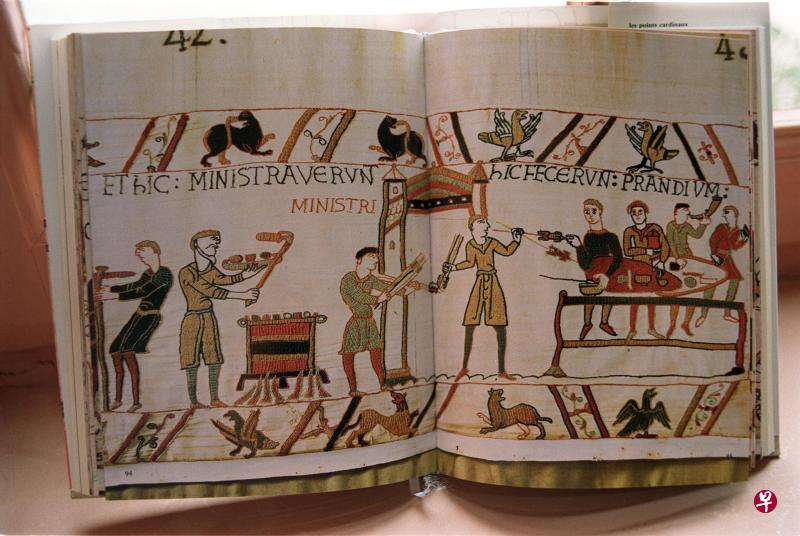 les points cardinaux
42.
4
ET hIC: MINISTRAVERVN
MINISTRI
hIC FECERVN: PRANDIVM:
94
早